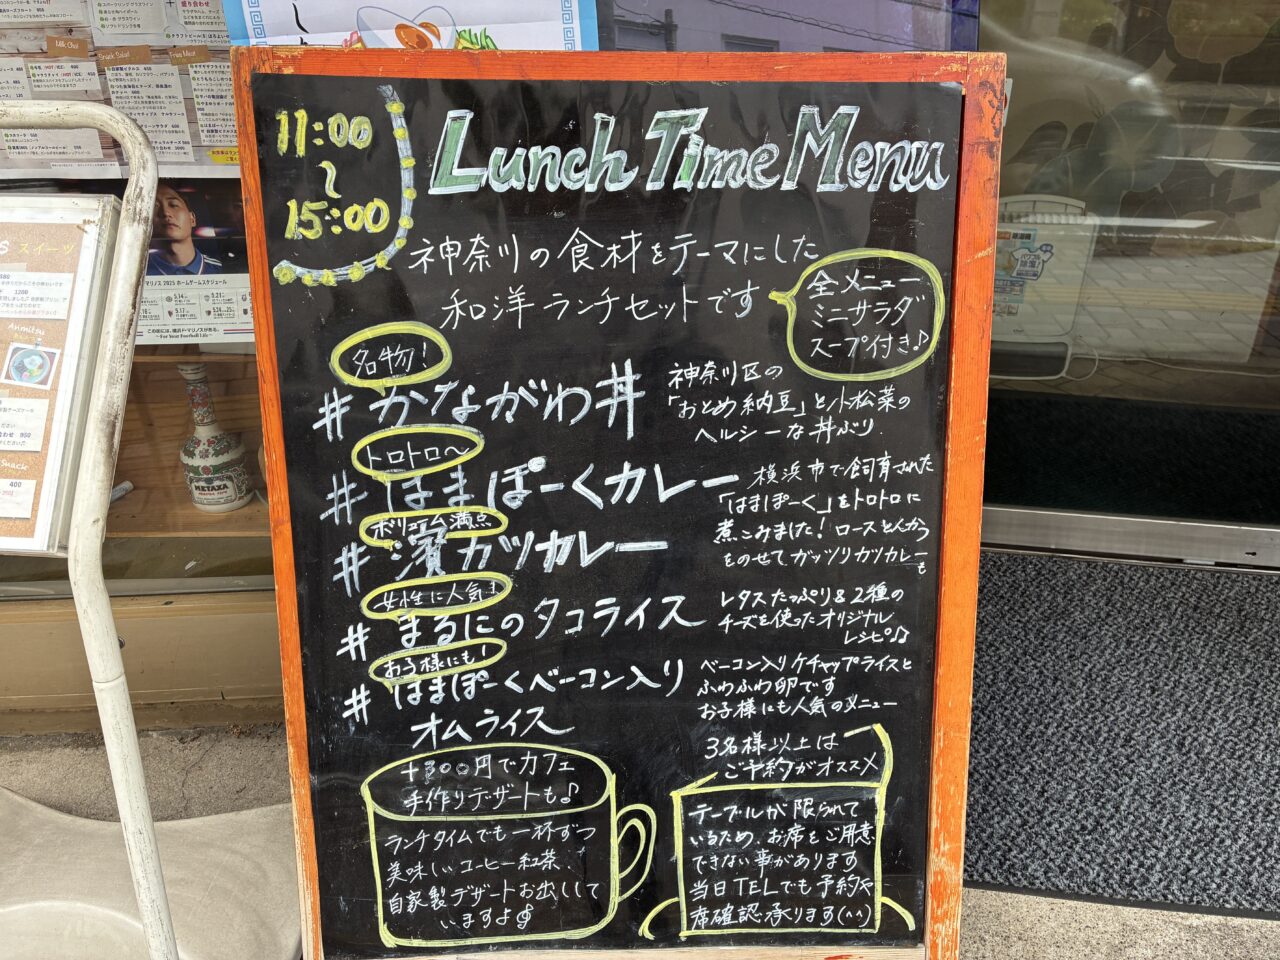 11:00
～
15:00
Lunch Time Menu
神奈川の食材をテーマにした
和洋ランチセットです
全メニュー
ミニサラダ
スープ付き♪
名物!
# かながわ丼
神奈川区の
「おとめ納豆」と小松菜の
ヘルシーな丼ぶり
トロトロ〜
# はまぽーくカレー
横浜市で飼育された
「はまぽーく」をトロトロに
煮こみました!
ボリューム満点
# 濱カツカレー
ロースとんかつ
をのせてガッツリカツカレーも
女性に人気!
# まるにのタコライス
レタスたっぷり&2種の
チーズを使ったオリジナル
レシピ♪
お子様にも!
# はまぽーくベーコン入り
オムライス
ベーコン入りケチャップライスと
ふわふわ卵です
お子様にも人気のメニュー
+300円でカフェ
手作りデザートも♪
ランチタイムでも一杯ずつ
美味しいコーヒー紅茶、
自家製デザートお出しして
いますよ
3名様以上は
ご予約がオススメ
テーブルが限られて
いるため、お席をご用意
できない事があります
当日TELでも予約や
席確認承ります(^^)
スイーツ
Anmitsu
Snack
400
950
1200
METAXA
Milk Chai
Snack Salad
Fries Meat
マリノス 2025 ホームゲームスケジュール
～For Your Football Life～